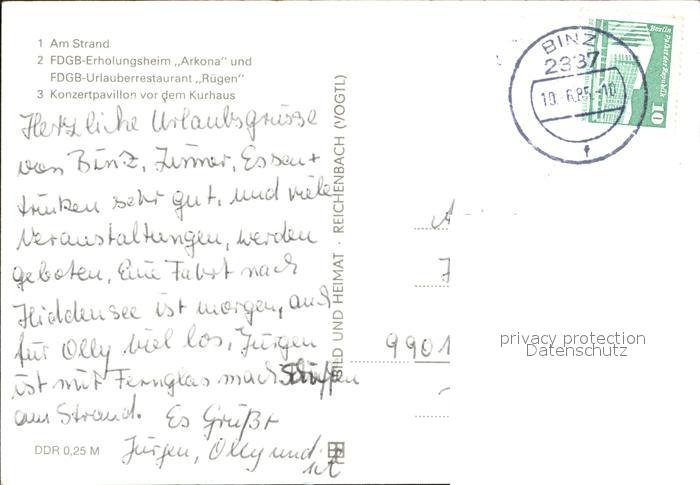 1 Am Strand
2 FDGB-Erholungsheim „Arkona" und
FDGB-Urlauberrestaurant „Rügen"
3 Konzertpavillon vor dem Kurhaus
Herzliche Urlaubsgrüsse
von Binz, Zimmer, Essen +
trinken sehr gut, und viele
Veranstaltungen, werden
geboten, Eine Fahrt nach
Hiddensee ist morgen, auch
für Olly viel los, Jürgen
ist mit Fernglas nach Schiffen
am Strand. Es Grüßt
Jürgen, Olly und
DDR 0,25 M
BILD UND HEIMAT · REICHENBACH (VOGTL)
BINZ
2337
10.-6.85.-10
f
Berlin
Palast der Republik
10
9901
privacy protection
Datenschutz